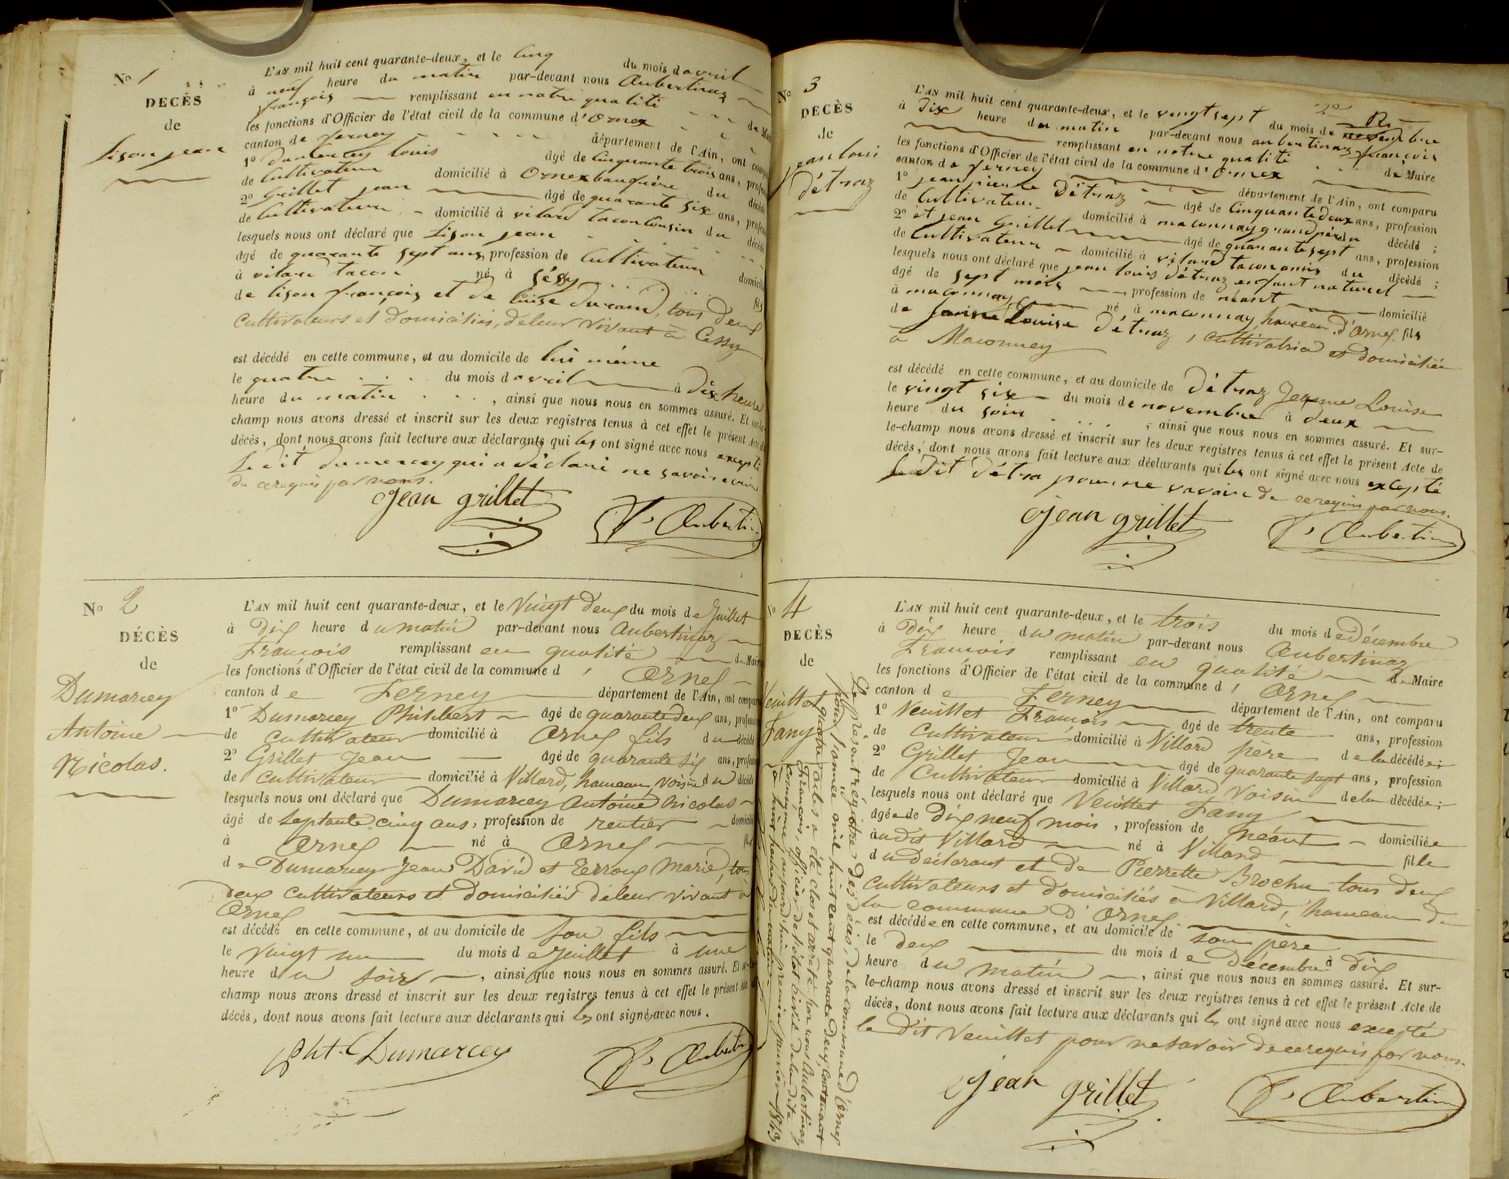 No 1
DECÈS
de
Lison jean
L'AN mil huit cent quarante-deux, et le cinq du mois d avril
à neuf heure du matin par-devant nous Aubertinaz
françois remplissant en notre qualité de Maire
les fonctions d'Officier de l'état civil de la commune d'Ornex
canton de ferney département de l'Ain, ont comparu
1o Dumarcey louis âgé de cinquante trois ans, profession
de Cultivateur domicilié à Ornex du décédé
2o Grillet jean âgé de quarante six ans, profession
de Cultivateur domicilié à vilard tacon voisin du décédé
lesquels nous ont déclaré que Lison jean
âgé de quarante sept ans, profession de Cultivateur domicilié
à vilard tacon né à Céssy fils
de lison françois et de loise durand, tous deux
cultivateurs et domiciliés, de leur vivant à Cessy
est décédé en cette commune, et au domicile de lui même
le quatre du mois d avril à dix heure
heure du matin, ainsi que nous nous en sommes assuré. Et sur-le-
champ nous avons dressé et inscrit sur les deux registres tenus à cet effet le présent Acte de
décès, dont nous avons fait lecture aux déclarants qui les ont signé avec nous excepté
le dit dumarcey qui a déclaré ne savoir écrire
de ce requis par nous.
Jean grillet F. Aubertin
No 2
DÉCÈS
de
Dumarcey
Antoine
Nicolas.
L'AN mil huit cent quarante-deux, et le Vingt deux du mois de Juillet
à Dix heure du matin par-devant nous Aubertinaz
François remplissant en qualité de Maire
les fonctions d'Officier de l'état civil de la commune d' Ornex
canton de Ferney département de l'Ain, ont comparu
1o Dumarcey Philibert âgé de quarante deux ans, profession
de Cultivateur domicilié à Ornex fils du décédé
2o Grillet Jean âgé de quarante six ans, profession
de Cultivateur domicilié à Villard, hameau, voisin du décédé
lesquels nous ont déclaré que Dumarcey Antoine Nicolas
âgé de Septante cinq ans, profession de rentier domicilié
à Ornex né à Ornex fils
de Dumarcey Jean David et Terroux Marie, tous
deux cultivateurs et domiciliés de leur vivant à
Ornex
est décédé en cette commune, et au domicile de son fils
le Vingt un du mois de Juillet à une
heure du soir, ainsi que nous nous en sommes assuré. Et sur-le-
champ nous avons dressé et inscrit sur les deux registres tenus à cet effet le présent Acte de
décès, dont nous avons fait lecture aux déclarants qui les ont signé avec nous.
Pht. Dumarcey F. Aubertin
No 3
DÉCÈS
de
jean louis
détraz
L'AN mil huit cent quarante-deux, et le vingt sept du mois de novembre
à dix heure du matin par-devant nous aubertinaz françois
remplissant en notre qualité de Maire
les fonctions d'Officier de l'état civil de la commune d'Ornex
canton de ferney département de l'Ain, ont comparu
1o jean pierre détraz âgé de Cinquante deux ans, profession
de Cultivateur domicilié à maconnay grand père du décédé ;
2o et jean Grillet âgé de quarante sept ans, profession
de Cultivateur domicilié à vilard tacon amis du décédé ;
lesquels nous ont déclaré que jean louis détraz enfant naturel
âgé de sept mois, profession de néant domicilié
à maconnay né à maconnay, hameau d'Ornex fils
de Jeanne Louise détraz, cultivatrice et domiciliée
à Maconney
est décédé en cette commune, et au domicile de détraz Jeanne Louise
le vingt six du mois de novembre à deux
heure du soir, ainsi que nous nous en sommes assuré. Et sur-
le-champ nous avons dressé et inscrit sur les deux registres tenus à cet effet le présent Acte de
décès, dont nous avons fait lecture aux déclarants qui les ont signé avec nous excepté
le dit détra pour ne savoir de ce requis par nous.
Jean grillet F. Aubertin
No 4
DÉCÈS
de
Veuillet
Fany
L'AN mil huit cent quarante-deux, et le trois du mois de décembre
à Dix heure du matin par-devant nous Aubertinaz
François remplissant en qualité de Maire
les fonctions d'Officier de l'état civil de la commune d' Ornex
canton de Ferney département de l'Ain, ont comparu
1o Veuillet François âgé de trente ans, profession
de Cultivateur domicilié à Villard père de la décédée ;
2o Grillet Jean âgé de quarante sept ans, profession
de Cultivateur domicilié à Villard Voisin de la décédée ;
lesquels nous ont déclaré que Veuillet Fany
âgée de dix neuf mois, profession de Néant domiciliée
à udit Villard né à Villard fille
du déclarant et de Pierrette Brochu tous deux
cultivateurs et domiciliés à Villard, hameau de
la commune d'Ornex
est décédée en cette commune, et au domicile de son père
le deux du mois de Décembre à dix
heure du matin, ainsi que nous nous en sommes assuré. Et sur-
le-champ nous avons dressé et inscrit sur les deux registres tenus à cet effet le présent Acte de
décès, dont nous avons fait lecture aux déclarants qui les ont signé avec nous excepté
le dit Veuillet pour ne savoir de ce requis par nous.
Jean grillet F. Aubertin
Le présent régistre des décès, de la commune d'Ornex
pour l'année mil huit cent quarante deux, contenant
quatre actes a été clos et arrêté par nous Aubertinaz
François, officier de l'état civil de la dite
commune, aujourd'hui premier janvier 1843